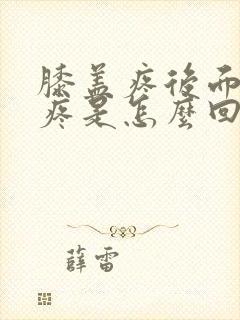 膝盖疼後而
疼是怎麼回
薛雷